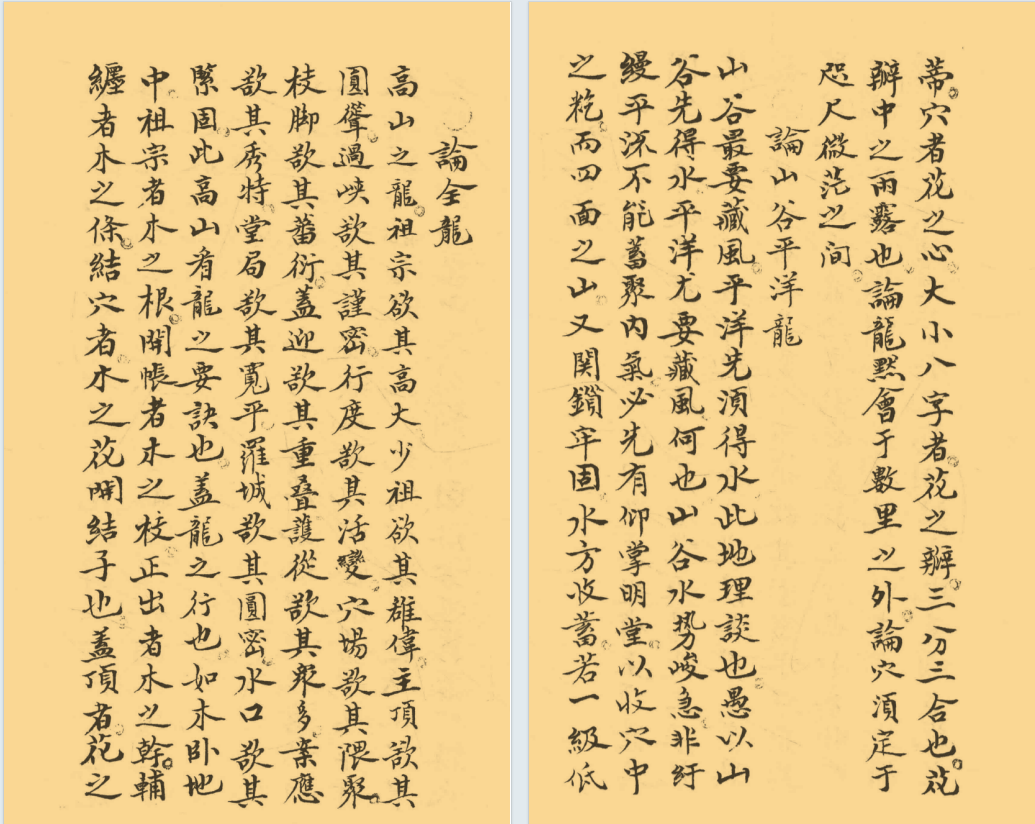 論全龍
高山之龍祖宗欲其高大少祖欲其雄偉主頂欲其
圓聳過峽欲其謹密行度欲其活變穴場欲其隈聚
枝脚欲其蕃衍蓋迎欲其重叠護從欲其衆多案應
欲其秀特堂局欲其寬平羅城欲其圓密水口欲其
緊固此高山看龍之要訣也蓋龍之行也如木卧地
中祖宗者木之根開帳者木之枝正出者木之幹輔
纒者木之條結穴者木之花開結子也蓋頂者花之
蒂穴者花之心大小八字者花之瓣三分三合也花
瓣中之雨露也論龍黙會于數里之外論穴須定于
咫尺微茫之间
論山谷平洋龍
山谷最要藏風平洋先須得水此地理談也愚以山
谷先得水平洋尤要藏風何也山谷水势峻急非紆
縵平深不能蓄聚内氣必先有仰掌明堂以收穴中
之而四面之山又関鎖牢固水方收蓄若一級低